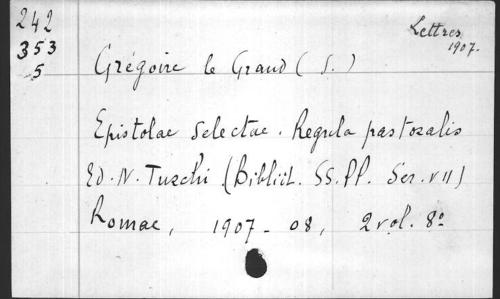 242
353
5
Lettres
1907.
Grégoire le Grand (S.)
Epistolae selectae. Regula pastoralis
Ed. N. Turchi (Bibliot. SS. PP. Ser. VII)
Romae, 1907-08, 2 vol. 8º